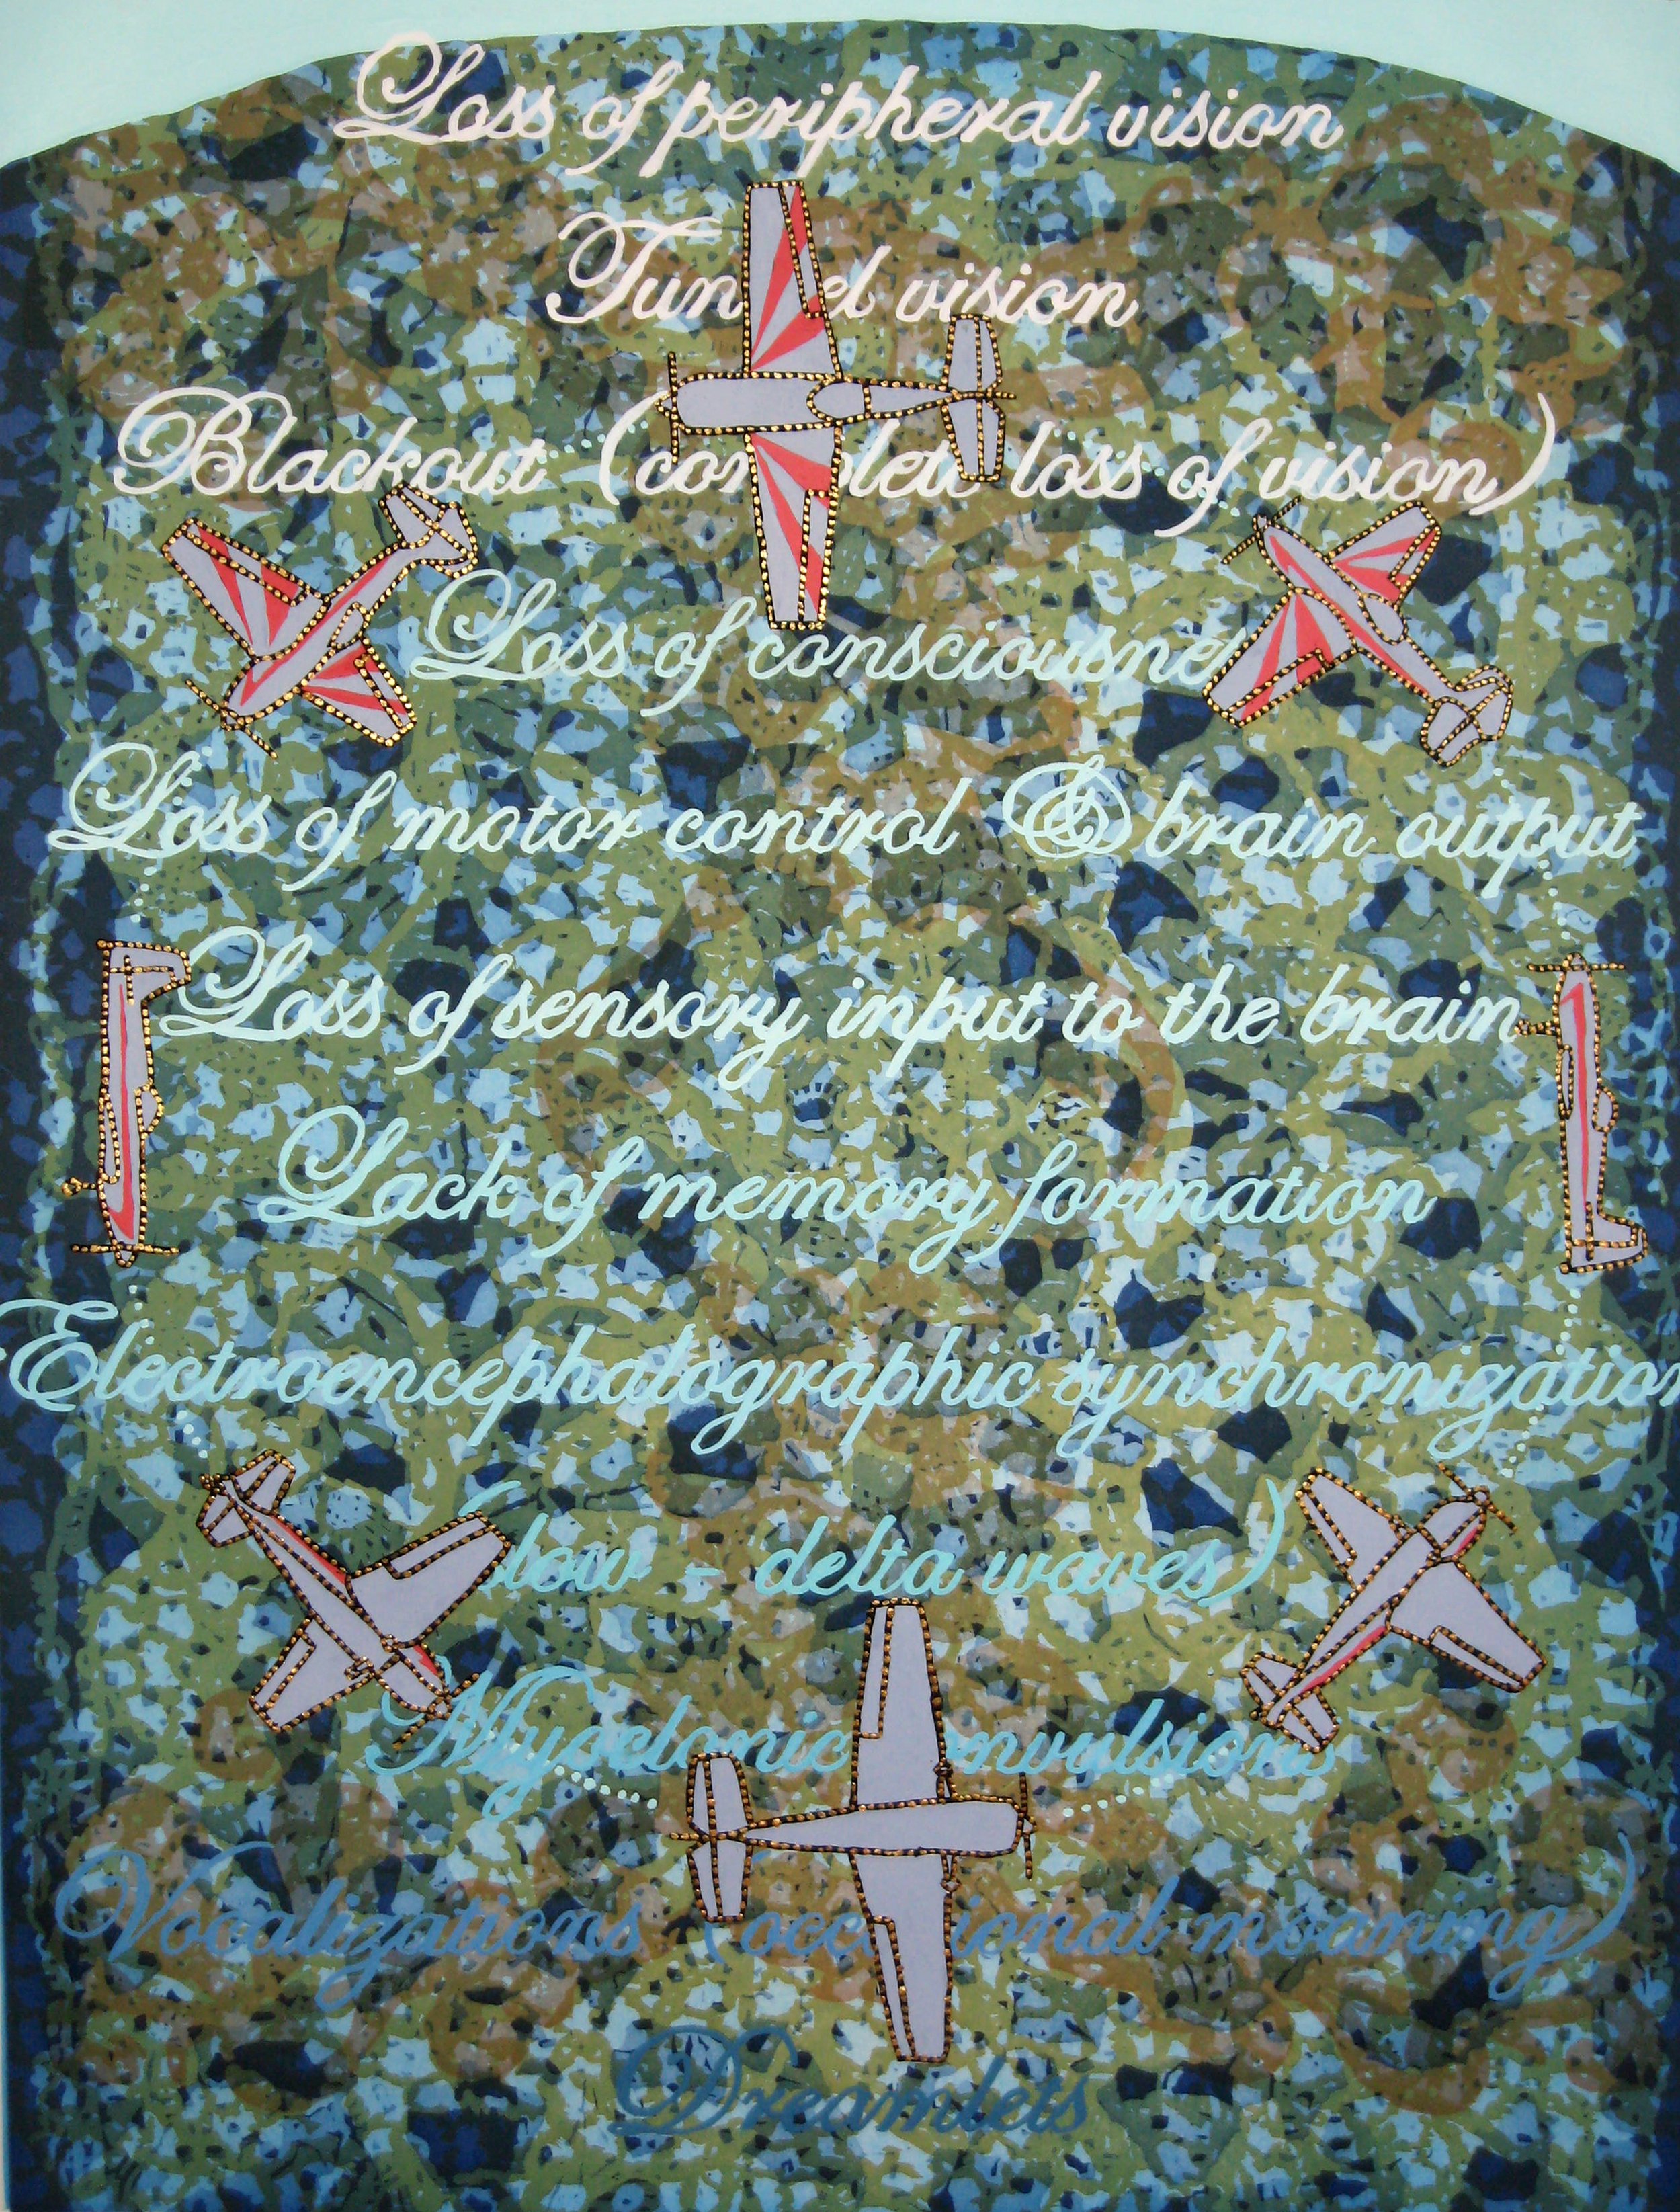 Loss of peripheral vision
Tunnel vision
Blackout (complete loss of vision)
Loss of consciousness
Loss of motor control & brain output
Loss of sensory input to the brain
Lack of memory formation
Electroencephalographic synchronization
(slow - delta waves)
Myoclonic convulsions
Vocalizations (occasional moaning)
Dreamlets